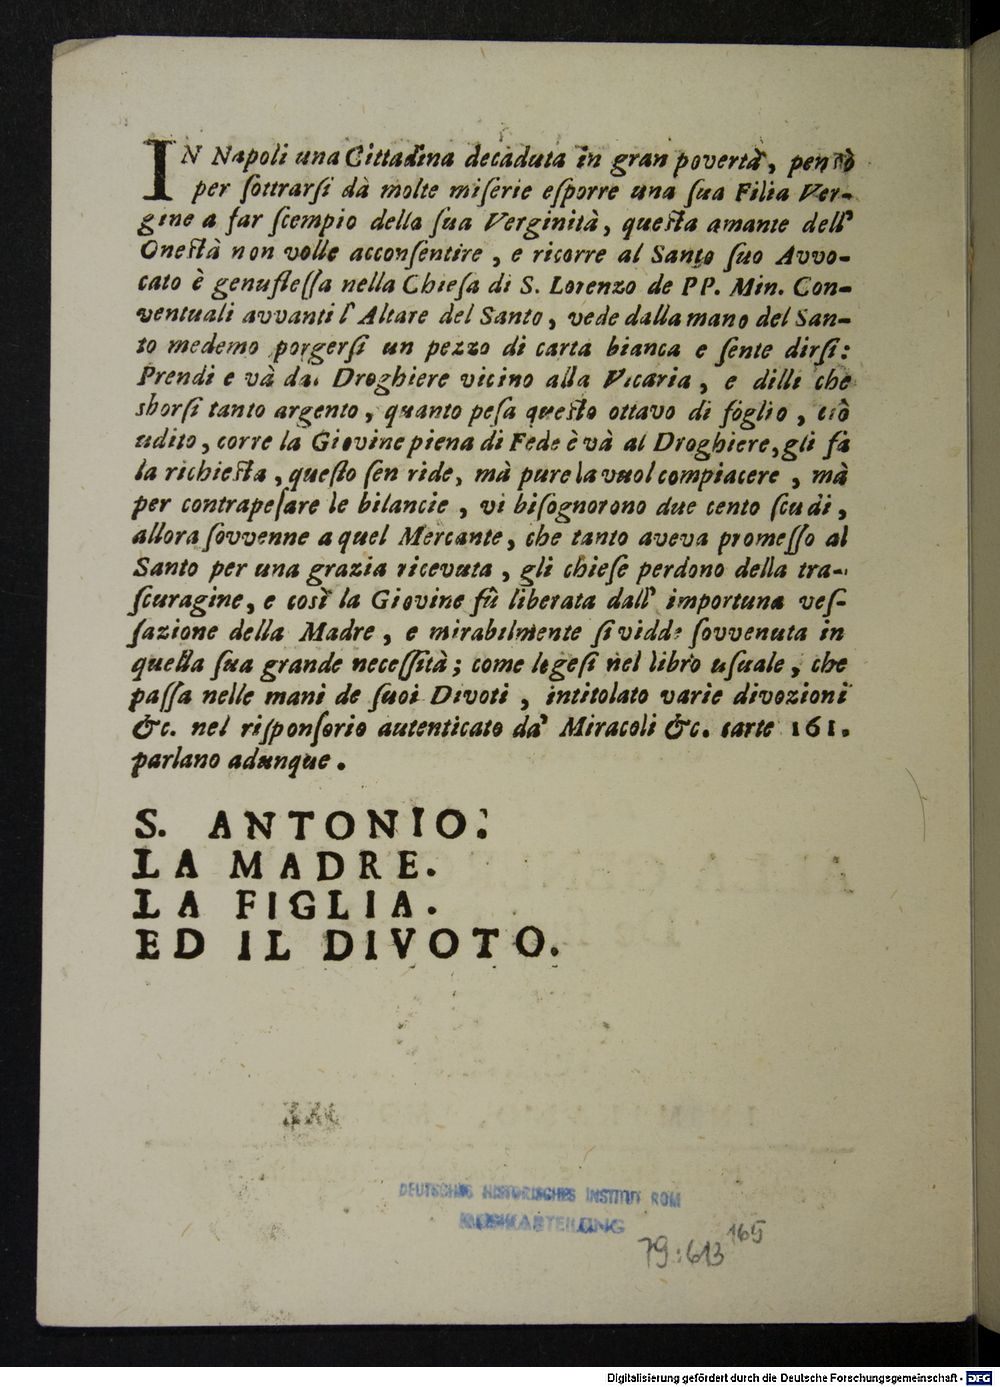 IN Napoli una Cittadina decaduta in gran povertà, pensò
per ſottrarſi dà molte miſerie eſporre una ſua Filia Ver-
gine a far ſcempio della ſua Verginità, queſta amante dell'
Oneſtà non volle acconſentire, e ricorre al Santo ſuo Avvo-
cato è genufleſſa nella Chieſa di S. Lorenzo de PP. Min. Con-
ventuali avvanti l'Altare del Santo, vede dalla mano del San-
to medemo porgerſi un pezzo di carta bianca e ſente dirſi:
Prendi e và dal Droghiere vicino alla Vicaria, e dilli che
sborſi tanto argento, quanto peſa queſto ottavo di foglio, ciò
udito, corre la Giovine piena di Fede è và al Droghiere, gli fà
la richieſta, queſto ſen ride, mà pure la vuol compiacere, mà
per contrapeſare le bilancie, vi biſognorono due cento ſcudi,
allora ſovvenne a quel Mercante, che tanto aveva promeſſo al
Santo per una grazia ricevuta, gli chieſe perdono della tra-
ſcuragine, e così la Giovine fù liberata dall' importuna veſ-
ſazione della Madre, e mirabilmente ſi vidde ſovvenuta in
quella ſua grande neceſſità; come legeſi nel libro uſuale, che
paſſa nelle mani de ſuoi Divoti, intitolato varie divozioni
&c. nel riſponſorio autenticato da' Miracoli &c. carte 161.
parlano adunque.
S. ANTONIO.
LA MADRE.
LA FIGLIA.
ED IL DIVOTO.
DEUTSCHES HISTORISCHES INSTITUT ROM
MUSIKABTEILUNG
79:613 165
Digitalisierung gefördert durch die Deutsche Forschungsgemeinschaft - DFG